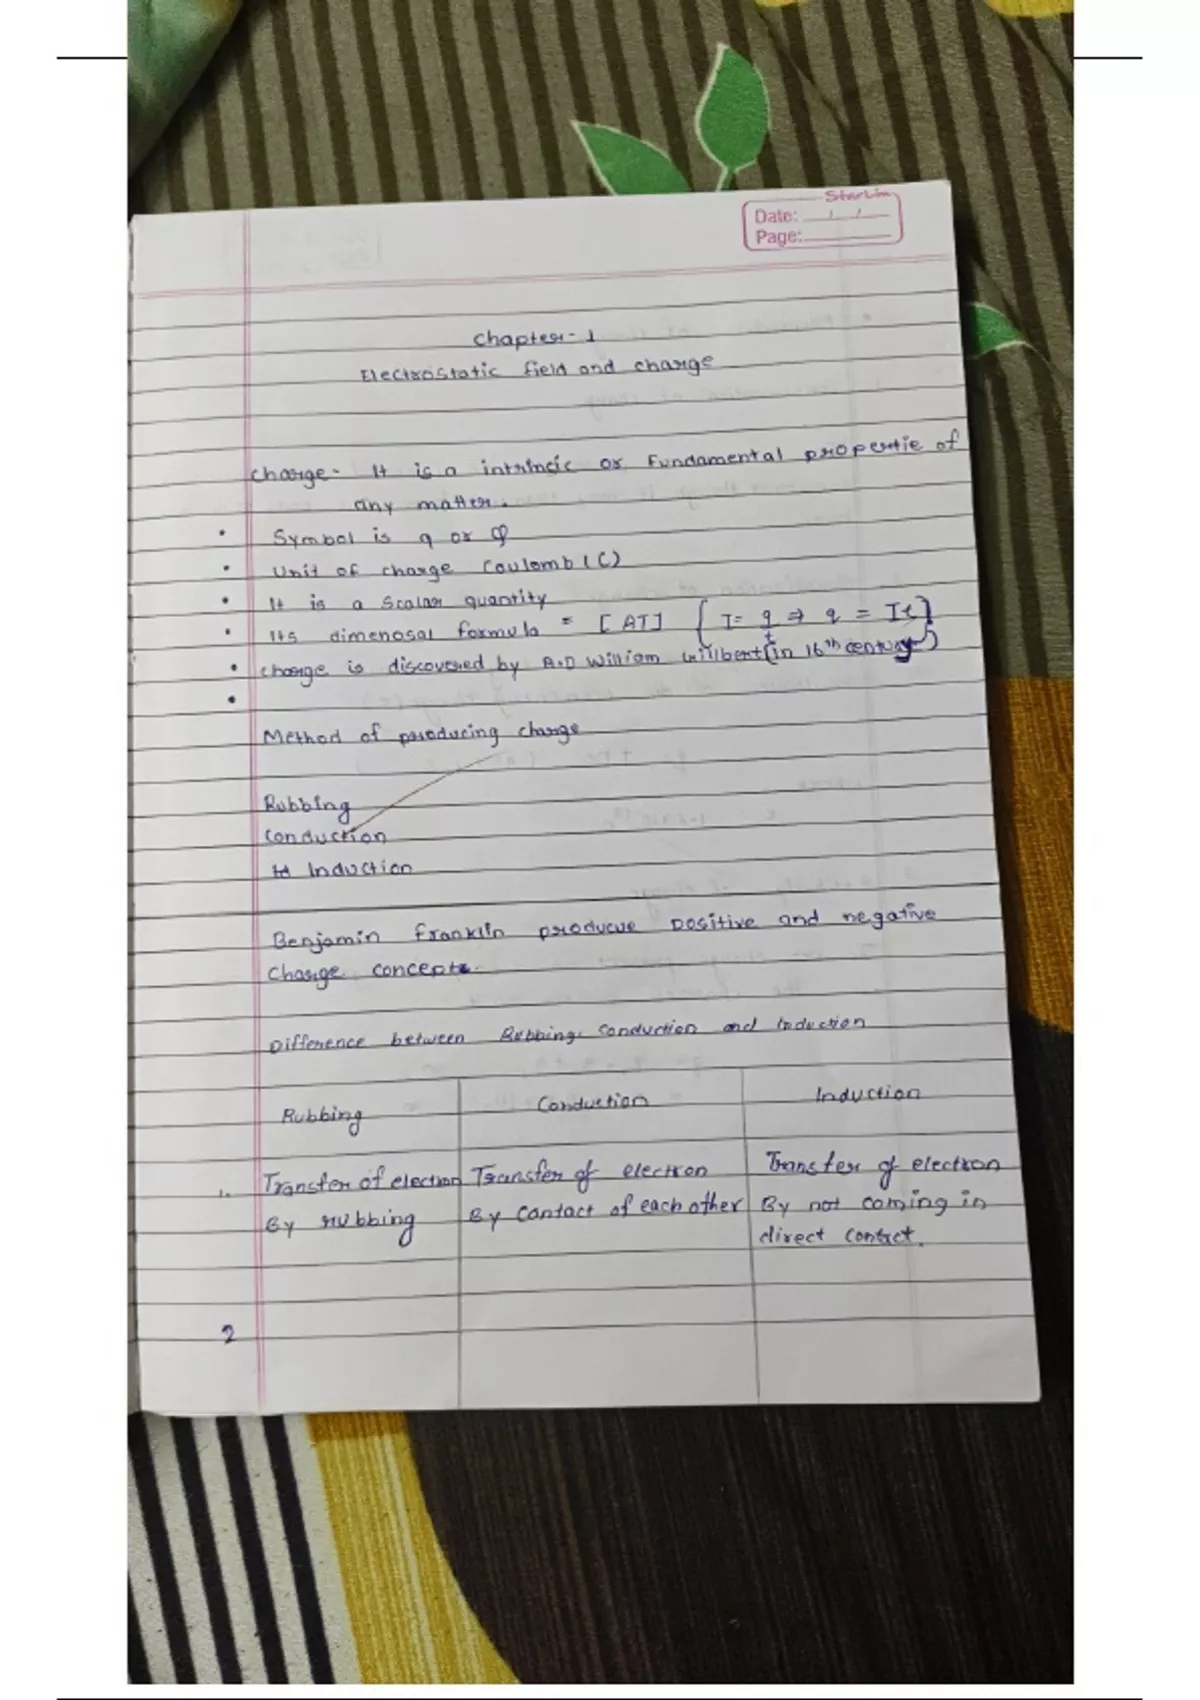 StarLine
Date: / /
Page:
Chapter-1
Electrostatic field and charge
Charge- It is a intrinsic or Fundamental propertie of
any matter.
• Symbol is q or Q
• Unit of charge Coulomb (C)
• It is a Scalar quantity
• Its dimenosal formula = [AT] { I = q/t ⇒ q = It }
• Charge is discovered by A.D William Gillbert (in 16th century)
•
Method of producing charge
Rubbing
Conduction
Induction
Benjamin franklin producue positive and negative
Charge concept
Difference between Rubbing, Conduction and Induction
Rubbing Conduction Induction
1. Transfer of electron Transfer of electron Transfer of electron
By rubbing By contact of each other By not coming in
direct contact.
2